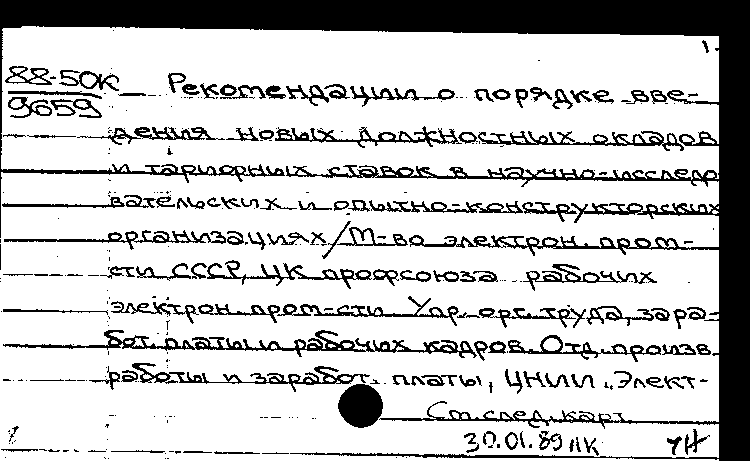 1.
88-50К Рекомендации о порядке вве-
9659
дения новых должностных окладов
и тарифных ставок в научно-исследо
вательских и опытно-конструкторских
организациях/М-во электрон. пром-
сти СССР, ЦК профсоюза рабочих
электрон. пром-сти Упр. орг. труда, зара-
бот. платы и рабочих кадров. Отд. произв.
работы и заработ. платы, ЦНИИ „Элект-
См. след. карт.
30.01.89 ЛК УН